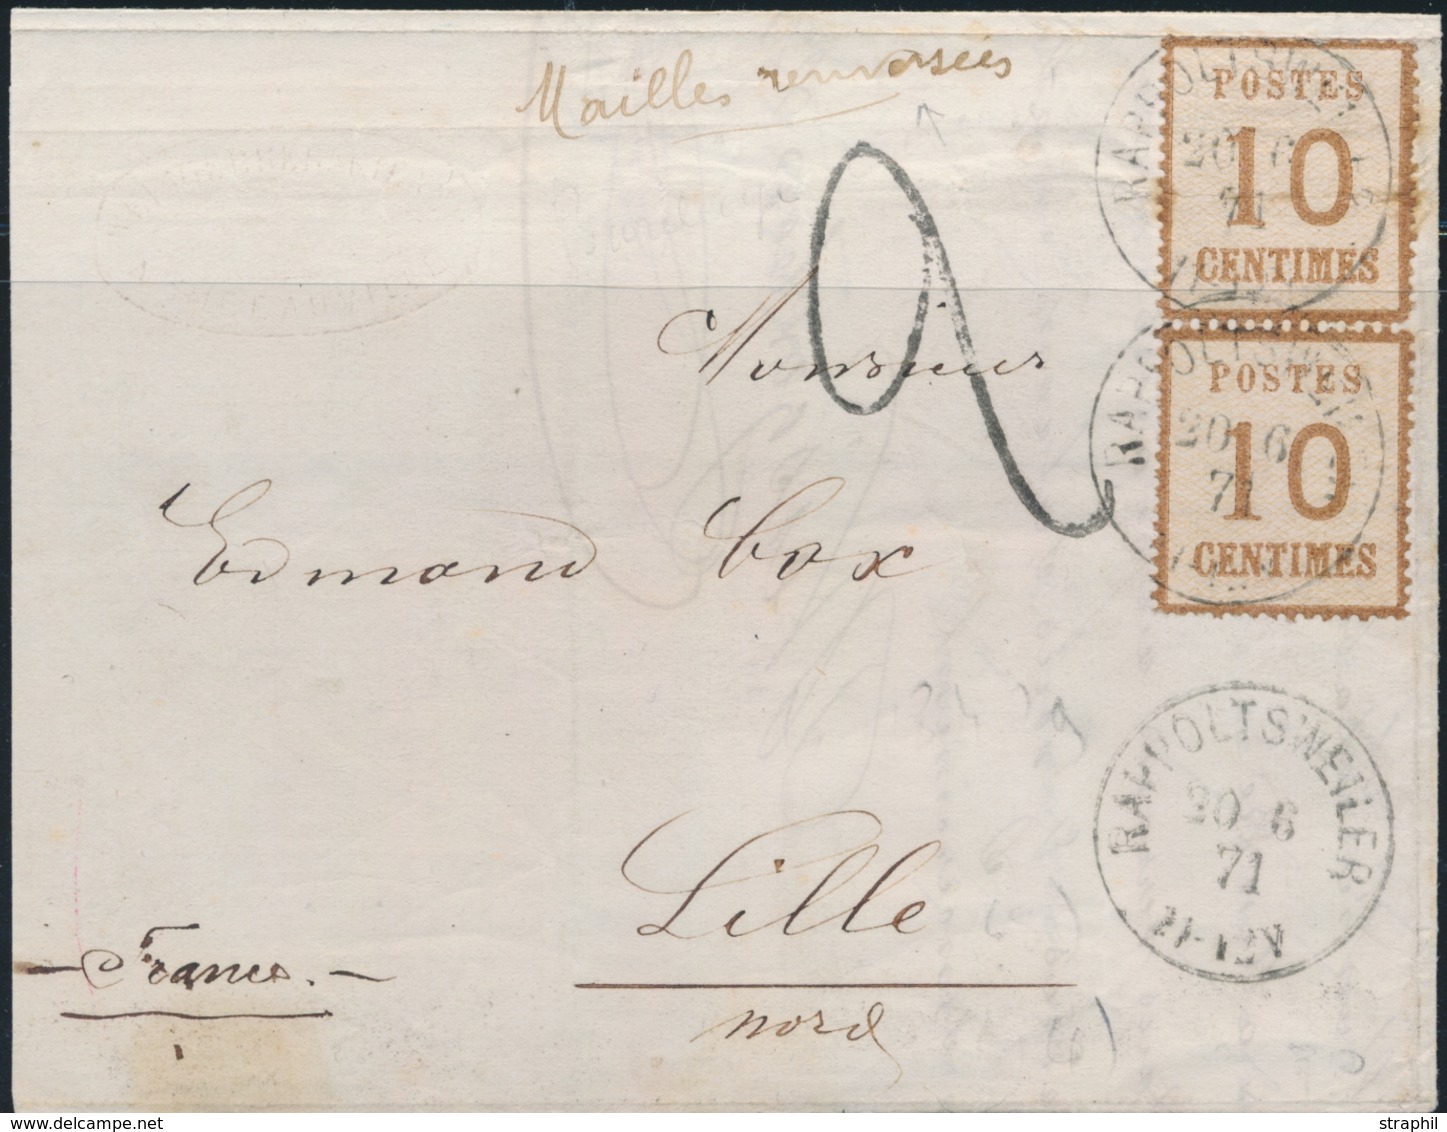 Mailles renversées
POSTES
10
CENTIMES
RAPPOLTSWEILER
20 6
71
POSTES
10
CENTIMES
RAPPOLTSWEILER
20 6
71
2
Monsieur
Edmond Cox
Lille
nord
France.
RAPPOLTSWEILER
20 6
71
11-12V
straphil